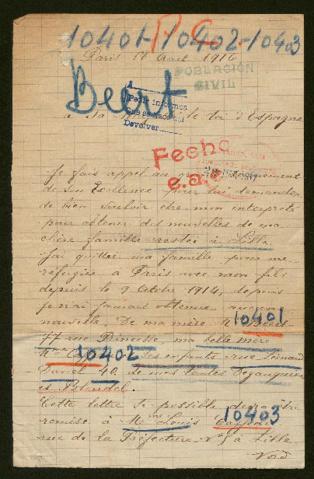 10401-10402-10403
P.C.
Paris 17 Avril 1916
POBLACIÓN
CIVIL
Beert
à Sa le Roi d'Espagne
Devolver
Fecho
Je fais appel au
de Son Excellence pour lui demander
de bien vouloir être mon interprète
pour obtenir des nouvelles de ma
chère famille restée à Lille
J'ai quitter ma famille pour me
réfugier à Paris avec mon fils
depuis le 9 Octobre 1914, depuis
je n'ai jamais obtenue
nouvelle. De ma mère 10401
77 rue Princesse, ma belle mère
Mme 10402 ses enfants rue
40 de mes tantes
et Blondel.
Cette lettre si possible
remise à Me Louis 10403
rue de la Préfecture No 5 à Lille
Nord